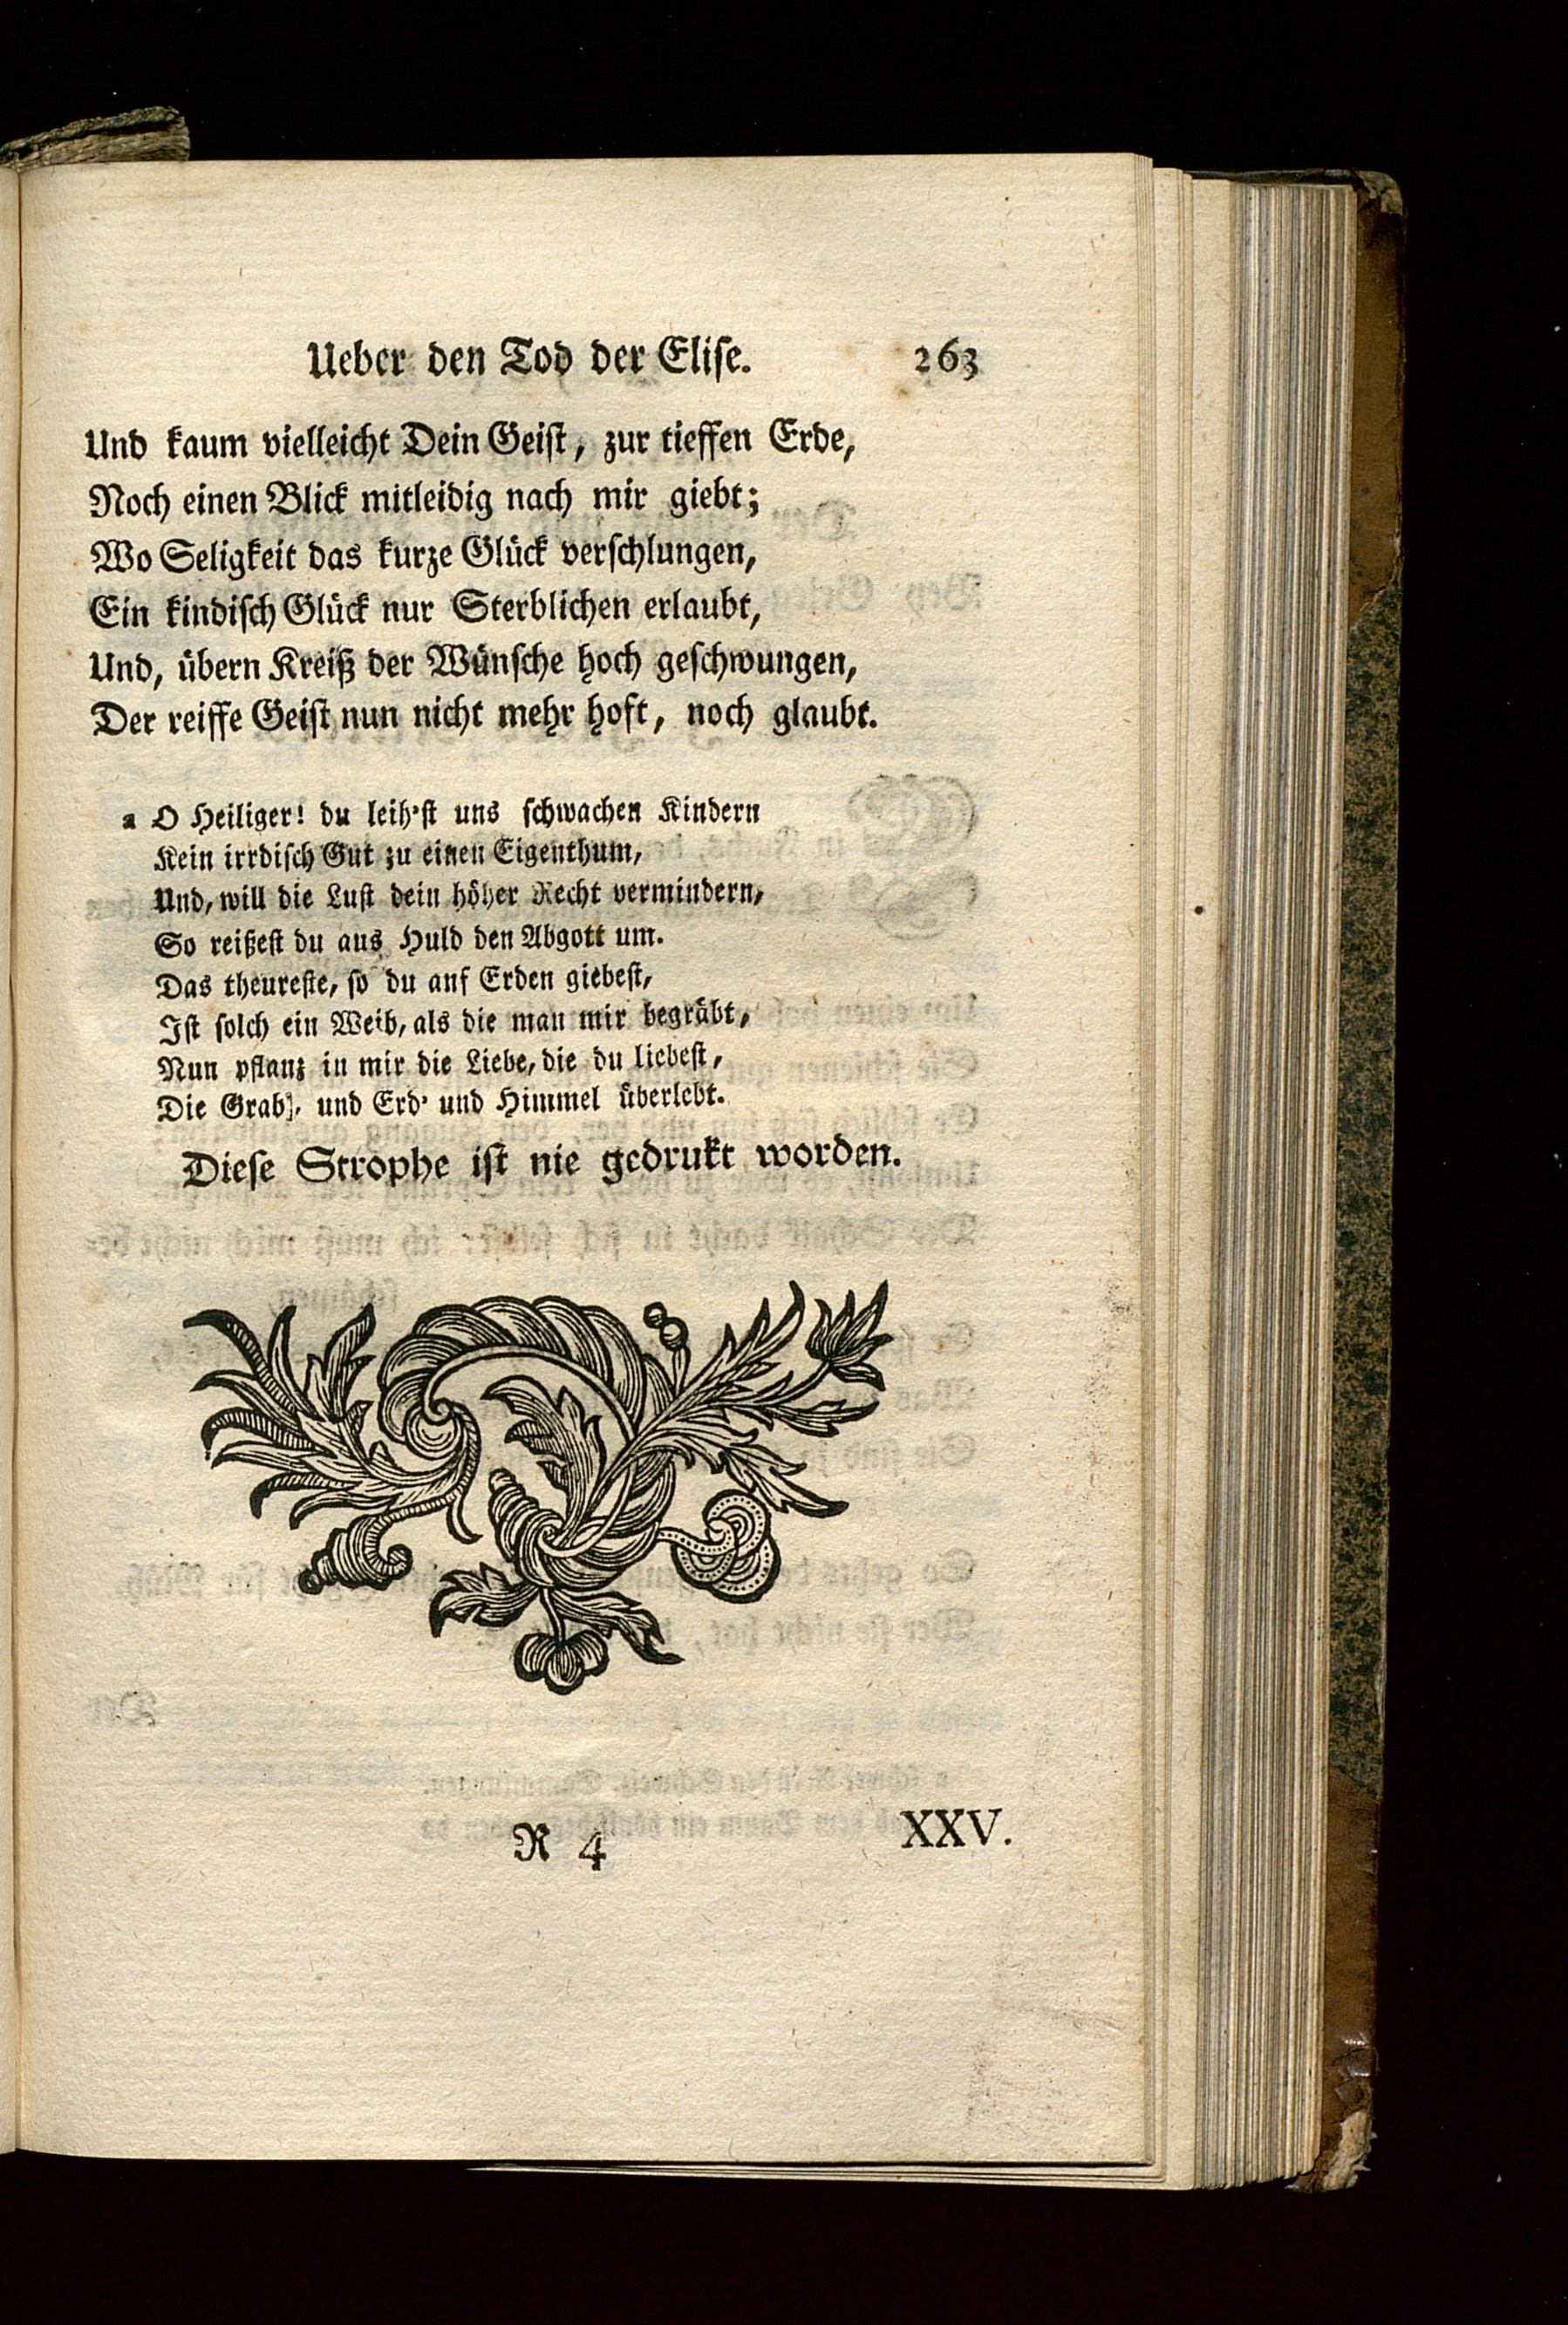 Ueber den Tod der Elise. 263
Und kaum vielleicht Dein Geist, zur tieffen Erde,
Noch einen Blick mitleidig nach mir giebt;
Wo Seligkeit das kurze Glück verschlungen,
Ein kindisch Glück nur Sterblichen erlaubt,
Und, übern Kreiß der Wünsche hoch geschwungen,
Der reiffe Geist nun nicht mehr hoft, noch glaubt.
a O Heiliger! du leih'st uns schwachen Kindern
Kein irrdisch Gut zu einen Eigenthum,
Und, will die Lust dein höher Recht vermindern,
So reißest du aus Huld den Abgott um.
Das theureste, so du auf Erden giebest,
Ist solch ein Weib, als die man mir begräbt,
Nun pflanz in mir die Liebe, die du liebest,
Die Grab, und Erd' und Himmel überlebt.
Diese Strophe ist nie gedrukt worden.
R 4 XXV.